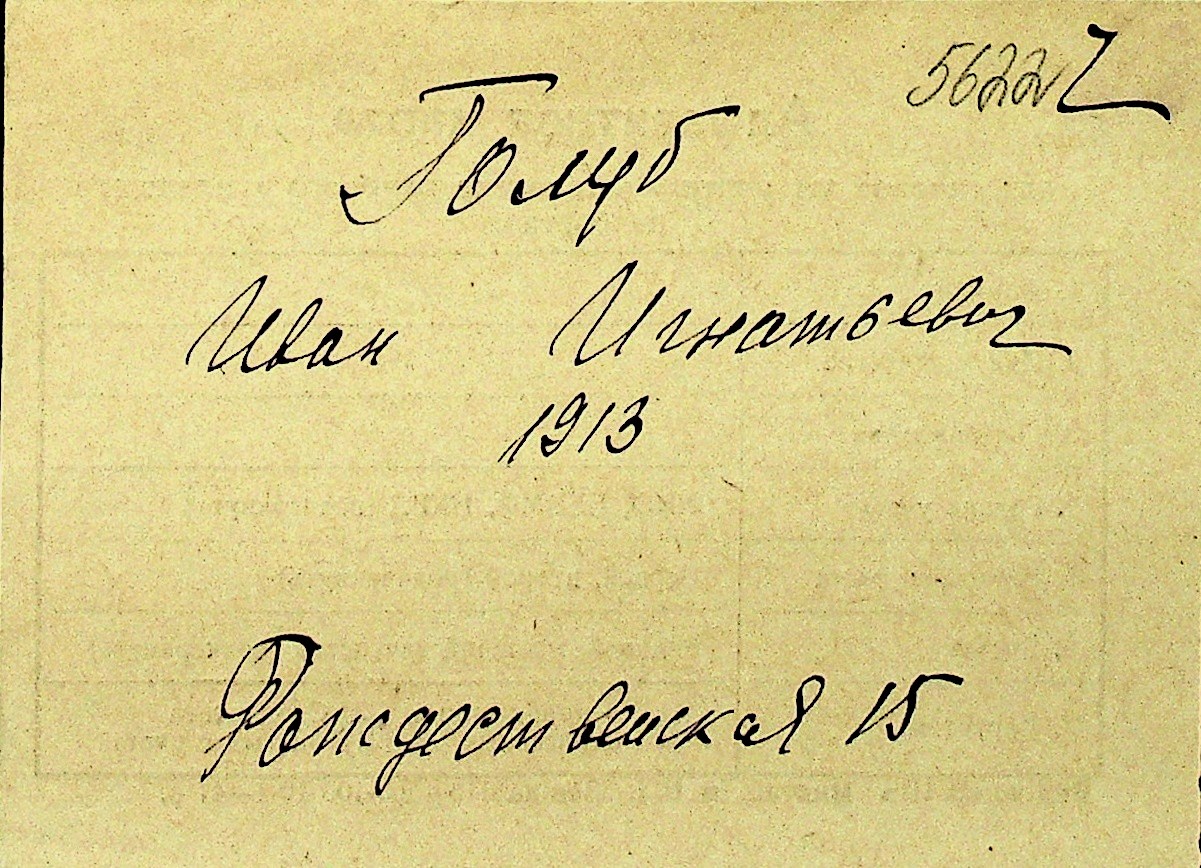 5622
Голуб
Иван Игнатьевич
1913
Рождественская 15